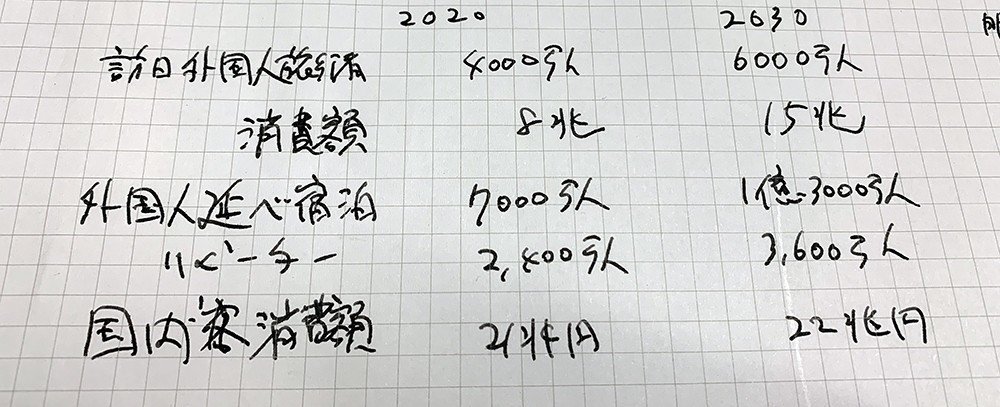 2020 2030
訪日外国人旅行者 4000万人 6000万人
消費額 8兆 15兆
外国人延べ宿泊 7000万人 1億3000万人
リピーター 2,400万人 3,600万人
国内客消費額 21兆円 22兆円